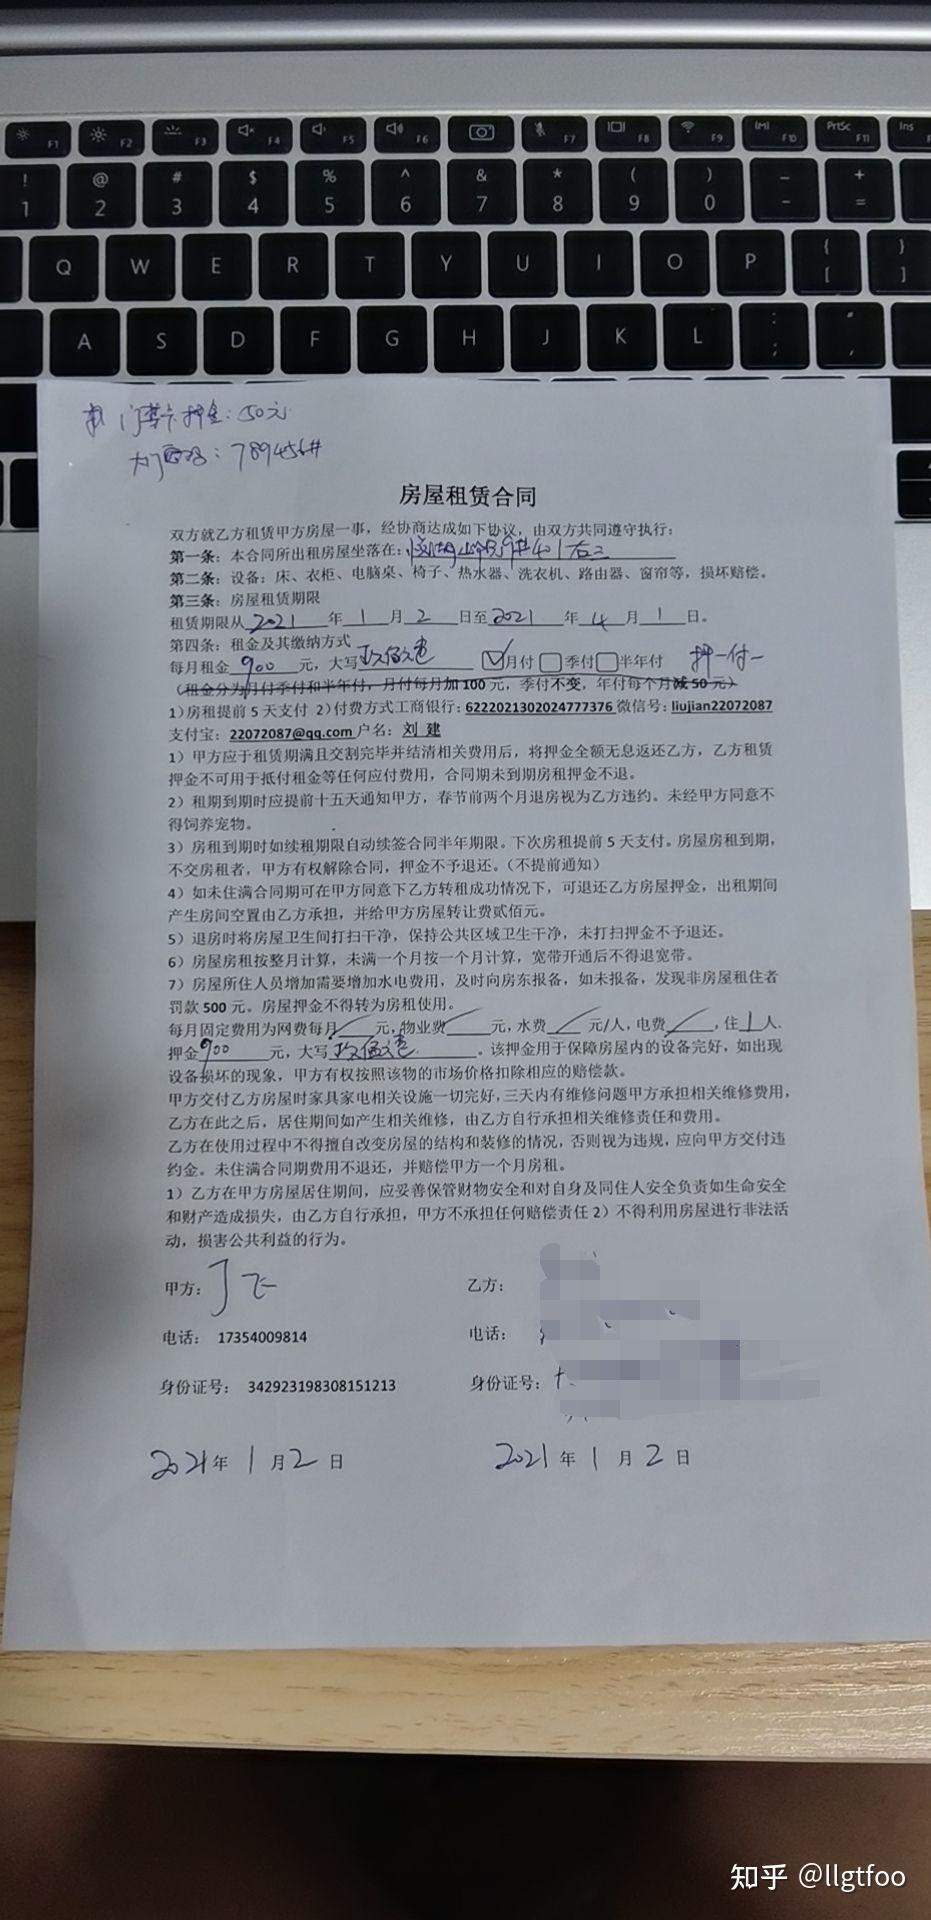 F1 F2 F3 F4 F5 F6 F7 F8 F9 F10 PrtSc F11 Ins
! @ # $ % ^ & * ( ) _ +
1 2 3 4 5 6 7 8 9 0 - =
Q W E R T Y U I O P { [ } ]
A S D F G H J K L : ; " '
门禁卡押金:50元
大门密码:789456#
房屋租赁合同
双方就乙方租赁甲方房屋一事,经协商达成如下协议,由双方共同遵守执行:
第一条:本合同所出租房屋坐落在: 401右三
第二条:设备:床、衣柜、电脑桌、椅子、热水器、洗衣机、路由器、窗帘等,损坏赔偿。
第三条:房屋租赁期限
租赁期限从 2021 年 1 月 2 日至 2021 年 4 月 1 日。
第四条:租金及其缴纳方式
每月租金 900 元,大写 玖佰元 月付 季付 半年付 押一付一
(租金分为月付季付和半年付,月付每月加100元,季付不变,年付每个月减50元)
1)房租提前5天支付 2)付费方式工商银行:6222021302024777376 微信号:liujian22072087
支付宝:22072087@qq.com 户名:刘 建
1)甲方应于租赁期满且交割完毕并结清相关费用后,将押金全额无息返还乙方,乙方租赁
押金不可用于抵付租金等任何应付费用,合同期未到期房租押金不退。
2)租期到期时应提前十五天通知甲方,春节前两个月退房视为乙方违约。未经甲方同意不
得饲养宠物。
3)房租到期时如续租期限自动续签合同半年期限。下次房租提前5天支付。房屋房租到期,
不交房租者,甲方有权解除合同,押金不予退还。(不提前通知)
4)如未住满合同期可在甲方同意下乙方转租成功情况下,可退还乙方房屋押金,出租期间
产生房间空置由乙方承担,并给甲方房屋转让费贰佰元。
5)退房时将房屋卫生间打扫干净,保持公共区域卫生干净,未打扫押金不予退还。
6)房屋房租按整月计算,未满一个月按一个月计算,宽带开通后不得退宽带。
7)房屋所住人员增加需要增加水电费用,及时向房东报备,如未报备,发现非房屋租住者
罚款500元。房屋押金不得转为房租使用。
每月固定费用为网费每月 元,物业费 元,水费 元/人,电费 ,住 1 人.
押金 900 元,大写 玖佰元 。该押金用于保障房屋内的设备完好,如出现
设备损坏的现象,甲方有权按照该物的市场价格扣除相应的赔偿款。
甲方交付乙方房屋时家具家电相关设施一切完好,三天内有维修问题甲方承担相关维修费用,
乙方在此之后,居住期间如产生相关维修,由乙方自行承担相关维修责任和费用。
乙方在使用过程中不得擅自改变房屋的结构和装修的情况,否则视为违规,应向甲方交付违
约金。未住满合同期费用不退还,并赔偿甲方一个月房租。
1)乙方在甲方房屋居住期间,应妥善保管财物安全和对自身及同住人安全负责如生命安全
和财产造成损失,由乙方自行承担,甲方不承担任何赔偿责任 2)不得利用房屋进行非法活
动,损害公共利益的行为。
甲方: 乙方:
电话: 17354009814 电话:
身份证号: 342923198308151213 身份证号:
2021年 1 月 2 日 2021 年 1 月 2 日
知乎 @llgtfoo